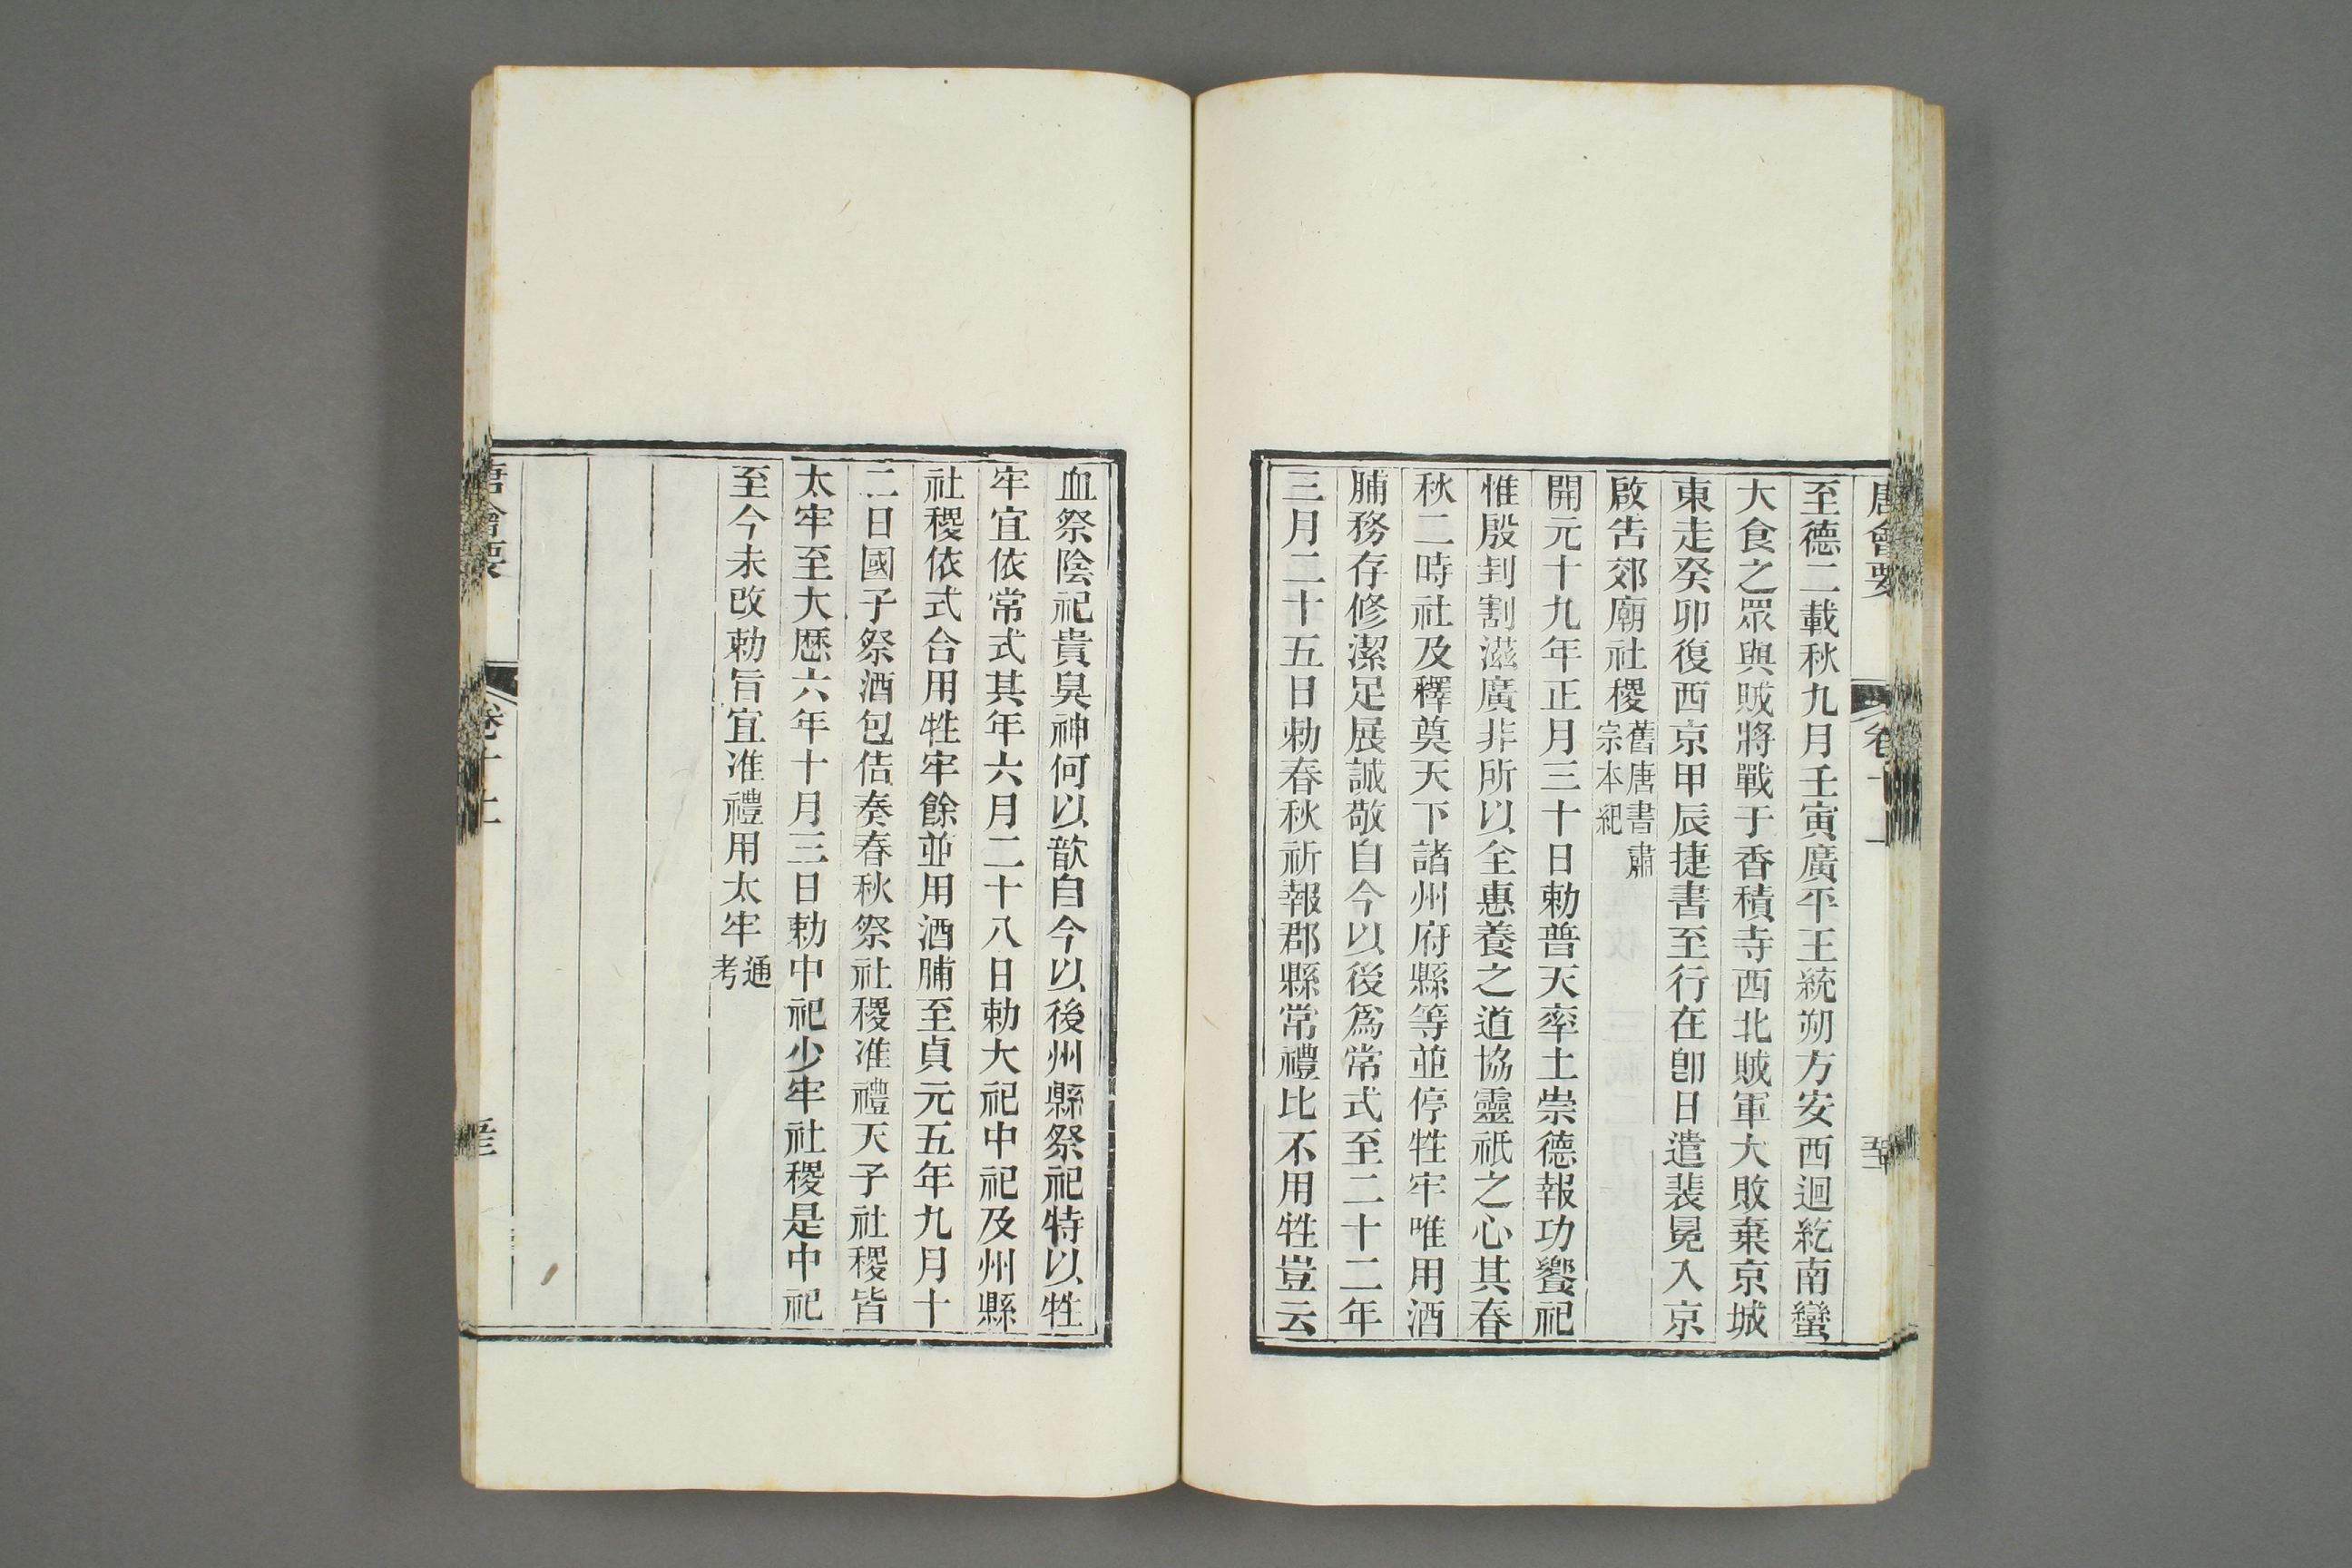 唐會要　卷十
至德二載秋九月壬寅廣平王統朔方安西迴紇南蠻
大食之眾與賊將戰于香積寺西北賊軍大敗棄京城
東走癸卯復西京甲辰捷書至行在卽日遣裴冕入京
啟告郊廟社稷舊唐書肅宗本紀
開元十九年正月三十日勅普天率土崇德報功饗祀
惟殷刲割滋廣非所以全惠養之道協靈祇之心其春
秋二時社及釋奠天下諸州府縣等並停牲牢唯用酒
脯務存修潔足展誠敬自今以後爲常式至二十二年
三月二十五日勅春秋祈報郡縣常禮比不用牲豈云
血祭陰祀貴臭神何以歆自今以後州縣祭祀特以牲
牢宜依常式其年六月二十八日勅大祀中祀及州縣
社稷依式合用牲牢餘並用酒脯至貞元五年九月十
二日國子祭酒包佶奏春秋祭社稷准禮天子社稷皆
太牢至大歷六年十月三日勅中祀少牢社稷是中祀
至今未改勅旨宜准禮用太牢通考
唐會要　卷十